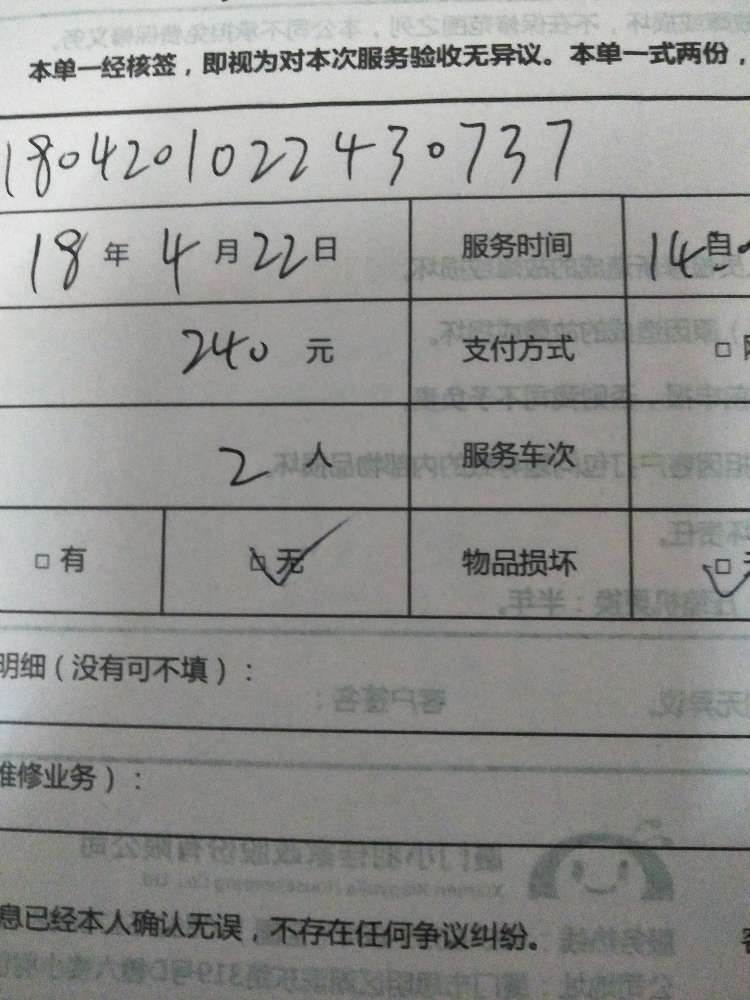 本单一经核签，即视为对本次服务验收无异议。本单一式两份，
18042010224430737
18 年 4 月 22 日 服务时间 14
240 元 支付方式 □
2 人 服务车次
□ 有 □ 无 物品损坏 □
明细（没有可不填）：
维修业务）：
息已经本人确认无误，不存在任何争议纠纷。